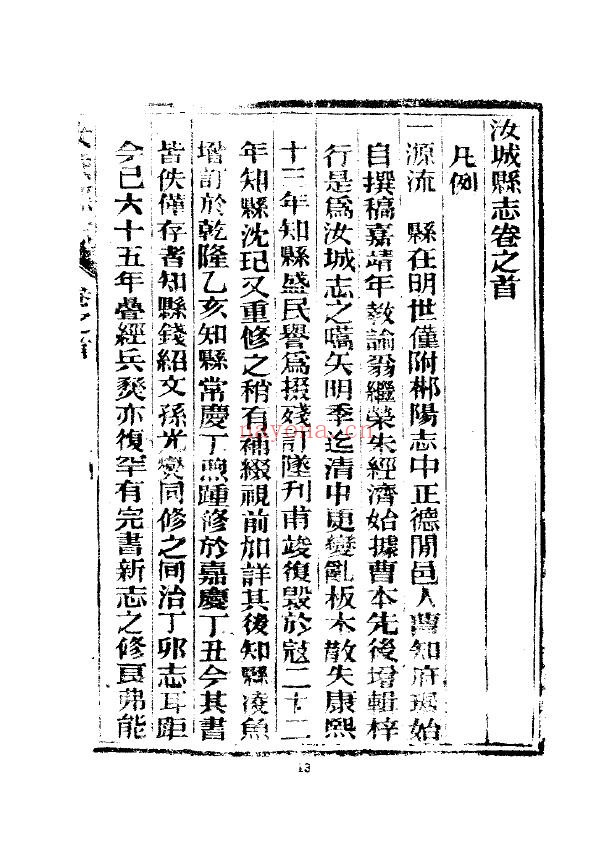 汝城縣志卷之首
凡例
一源流 縣在明世僅附郴陽志中正德間邑人曹知府琪始
自撰稿嘉靖年教諭翁繼榮朱經濟始據曹本先後增輯梓
行是爲汝城志之嚆矢明季迄清中更變亂板本散失康熙
十三年知縣盛民譽爲掇殘訂墜刊甫竣復毀於寇二十二
年知縣沈玘又重修之稍有補綴視前加詳其後知縣凌魚
增訂於乾隆乙亥知縣常慶丁煦踵修於嘉慶丁丑今其書
皆佚僅存者知縣錢紹文孫光燮同修之同治丁卯志耳距
今已六十五年疊經兵燹亦復罕有完書新志之修良弗能
卷之首
nayona.cn
13